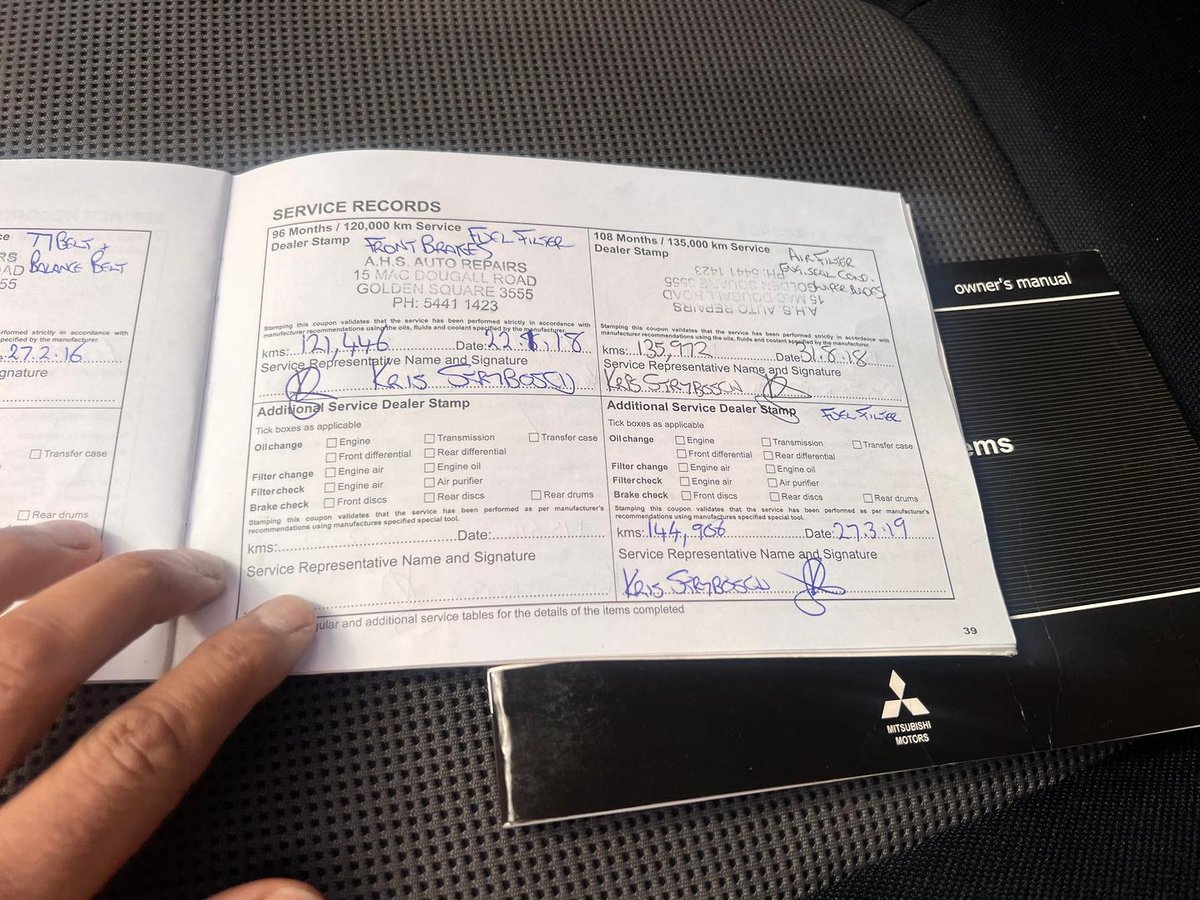 T/BELT &
BALANCE BELT
27.2.16
gnature
Transfer case
Rear drums
SERVICE RECORDS
96 Months / 120,000 km Service
Dealer Stamp
FRONT BRAKES FUEL FILTER
A.H.S. AUTO REPAIRS
15 MAC DOUGALL ROAD
GOLDEN SQUARE 3555
PH: 5441 1423
Stamping this coupon validates that the service has been performed strictly in accordance with
manufacturer recommendations using the oils, fluids and coolant specified by the manufacturer.
kms: 121,446 Date: 22. .18
Service Representative Name and Signature
KRIS STRYBOSCH
108 Months / 135,000 km Service
Dealer Stamp
AIR FILTER
ENG. SEAL COND.
WIPER BLADES
A.H.S. AUTO REPAIRS
15 MAC DOUGALL ROAD
GOLDEN SQUARE 3555
PH: 5441 1423
Stamping this coupon validates that the service has been performed strictly in accordance with
manufacturer recommendations using the oils, fluids and coolant specified by the manufacturer.
kms: 135,972 Date: 31.8.18
Service Representative Name and Signature
KRIS STRYBOSCH
Additional Service Dealer Stamp
Tick boxes as applicable
Oil change Engine Transmission Transfer case
Front differential Rear differential
Filter change Engine air Engine oil
Filter check Engine air Air purifier
Brake check Front discs Rear discs Rear drums
Stamping this coupon validates that the service has been performed as per manufacturer's
recommendations using manufactures specified special tool.
kms: Date:
Service Representative Name and Signature
Additional Service Dealer Stamp FUEL FILTER
Tick boxes as applicable
Oil change Engine Transmission Transfer case
Front differential Rear differential
Filter change Engine air Engine oil
Filter check Engine air Air purifier
Brake check Front discs Rear discs Rear drums
Stamping this coupon validates that the service has been performed as per manufacturer's
recommendations using manufactures specified special tool.
kms: 144,906 Date: 27.3.19
Service Representative Name and Signature
KRIS STRYBOSCH
gular and additional service tables for the details of the items completed
39
owner's manual
ems
MITSUBISHI
MOTORS